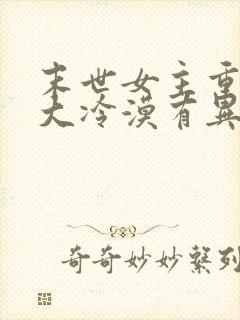 末世女主重
大冷漠有異
奇奇妙妙系列